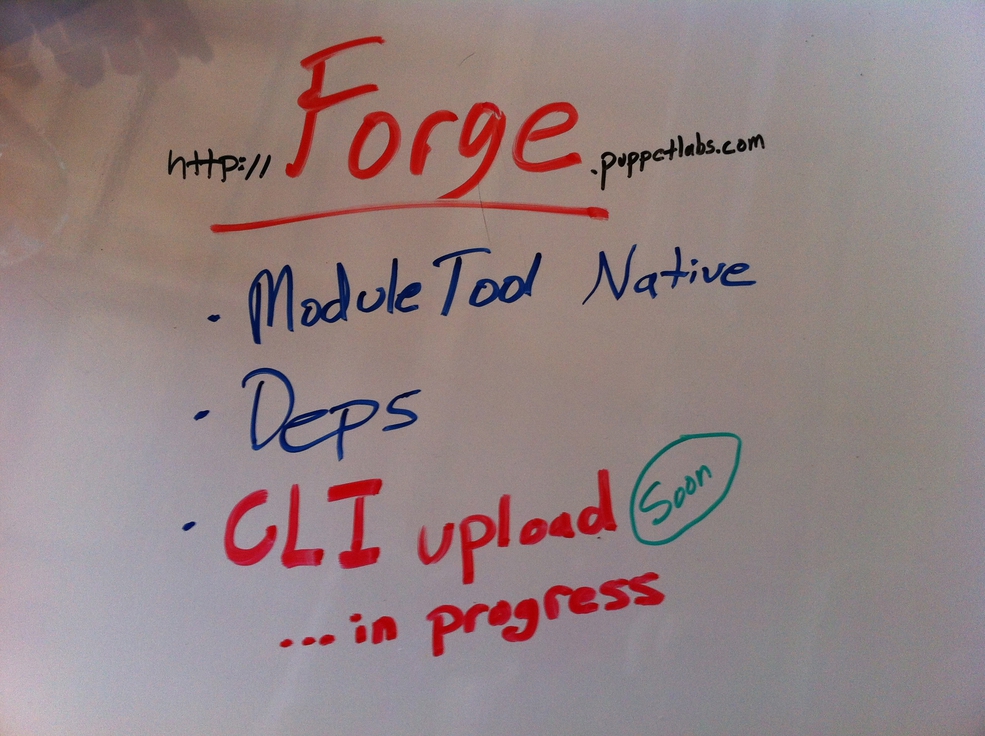 http://Forge.puppetlabs.com
• Module Tool Native
• Deps
• CLI upload Soon
... in progress